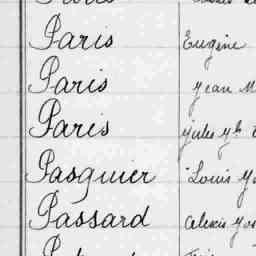 Paris Eugène
Paris Jean M
Paris Jules
Pasquier Louis
Passard Alexis